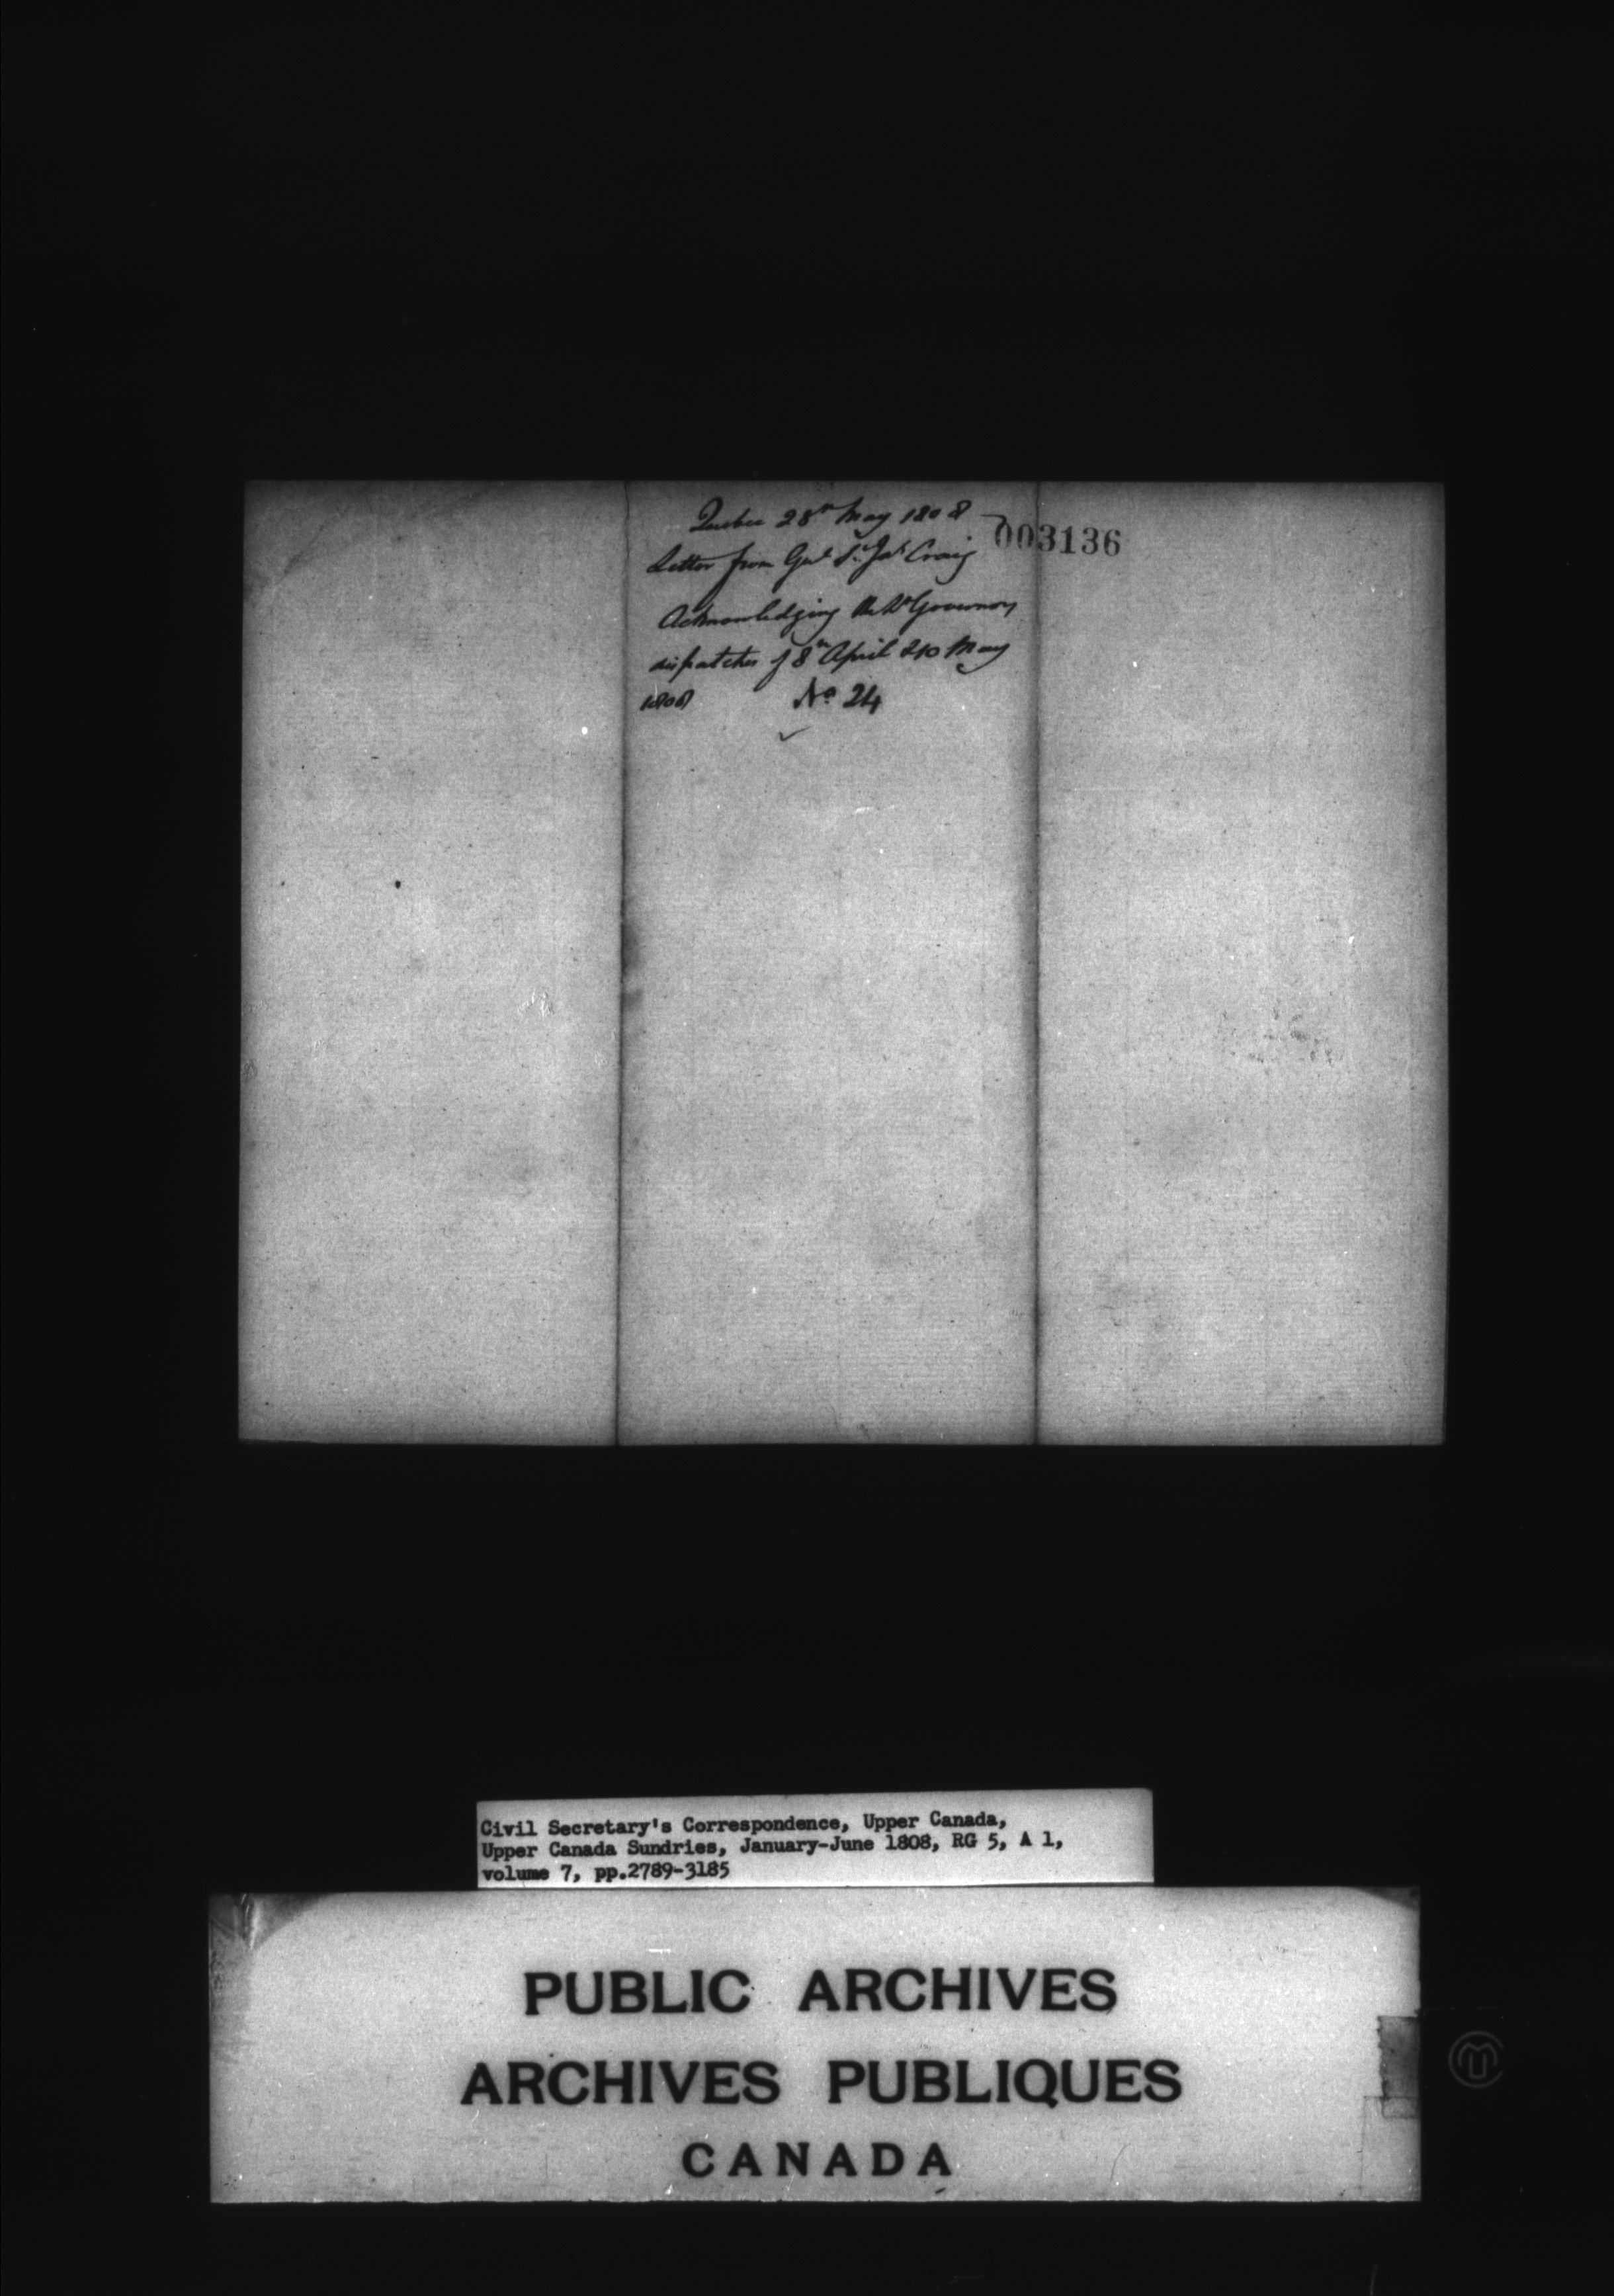 Quebec 28th May 1808
003136
Letter from Genl Sir Jas Craig
Acknowledging the Lt Governors
dispatches of 8th April & 10 May
1808 No 24
Civil Secretary's Correspondence, Upper Canada,
Upper Canada Sundries, January-June 1808, RG 5, A 1,
volume 7, pp.2789-3185
PUBLIC ARCHIVES
ARCHIVES PUBLIQUES
CANADA